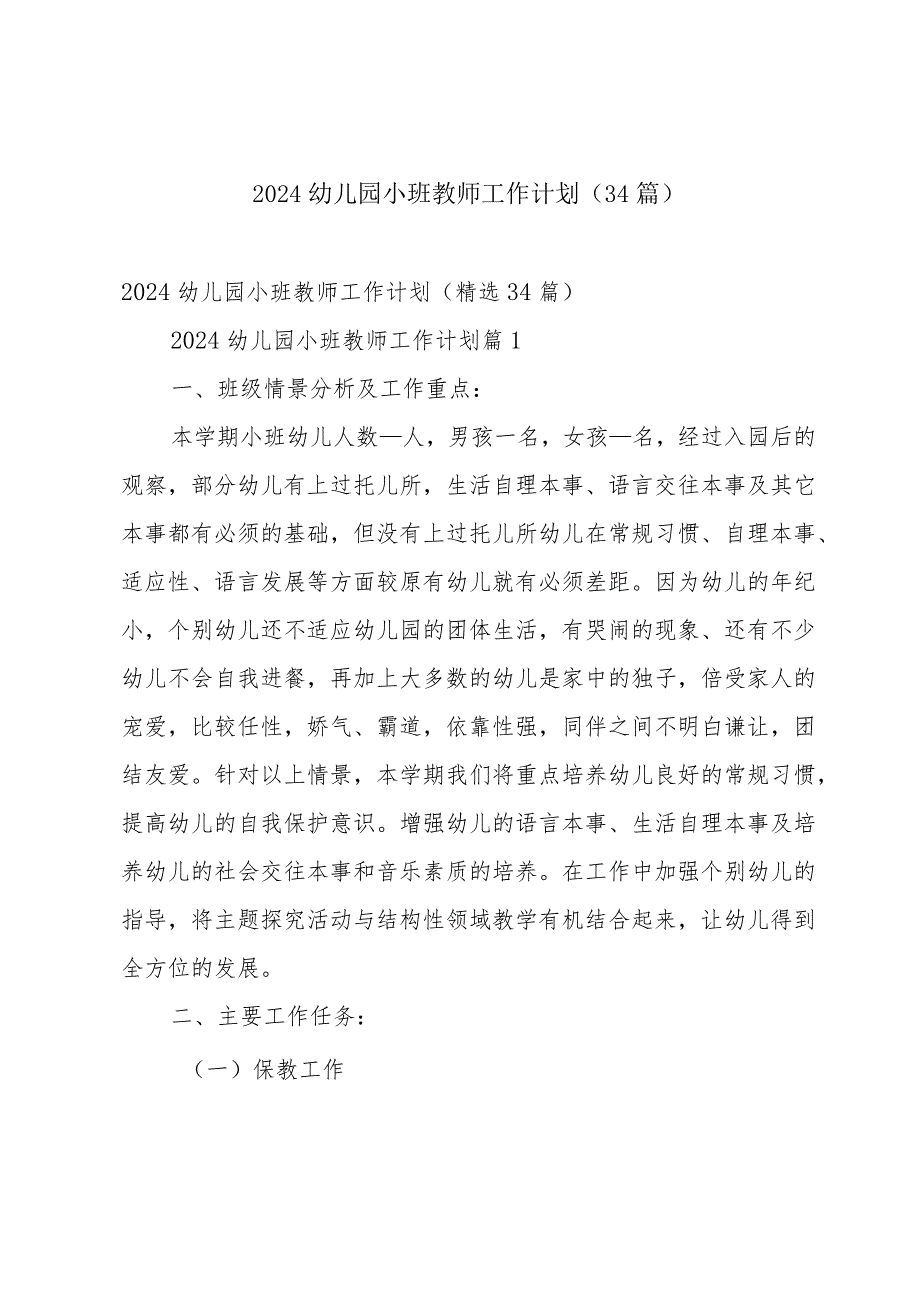 2024幼儿园小班教师工作计划（34篇）
2024幼儿园小班教师工作计划（精选34篇）
2024幼儿园小班教师工作计划篇1
一、班级情景分析及工作重点：
本学期小班幼儿人数—人，男孩一名，女孩—名，经过入园后的
观察，部分幼儿有上过托儿所，生活自理本事、语言交往本事及其它
本事都有必须的基础，但没有上过托儿所幼儿在常规习惯、自理本事、
适应性、语言发展等方面较原有幼儿就有必须差距。因为幼儿的年纪
小，个别幼儿还不适应幼儿园的团体生活，有哭闹的现象、还有不少
幼儿不会自我进餐，再加上大多数的幼儿是家中的独子，倍受家人的
宠爱，比较任性，娇气、霸道，依靠性强，同伴之间不明白谦让，团
结友爱。针对以上情景，本学期我们将重点培养幼儿良好的常规习惯，
提高幼儿的自我保护意识。增强幼儿的语言本事、生活自理本事及培
养幼儿的社会交往本事和音乐素质的培养。在工作中加强个别幼儿的
指导，将主题探究活动与结构性领域教学有机结合起来，让幼儿得到
全方位的发展。
二、主要工作任务：
（一）保教工作